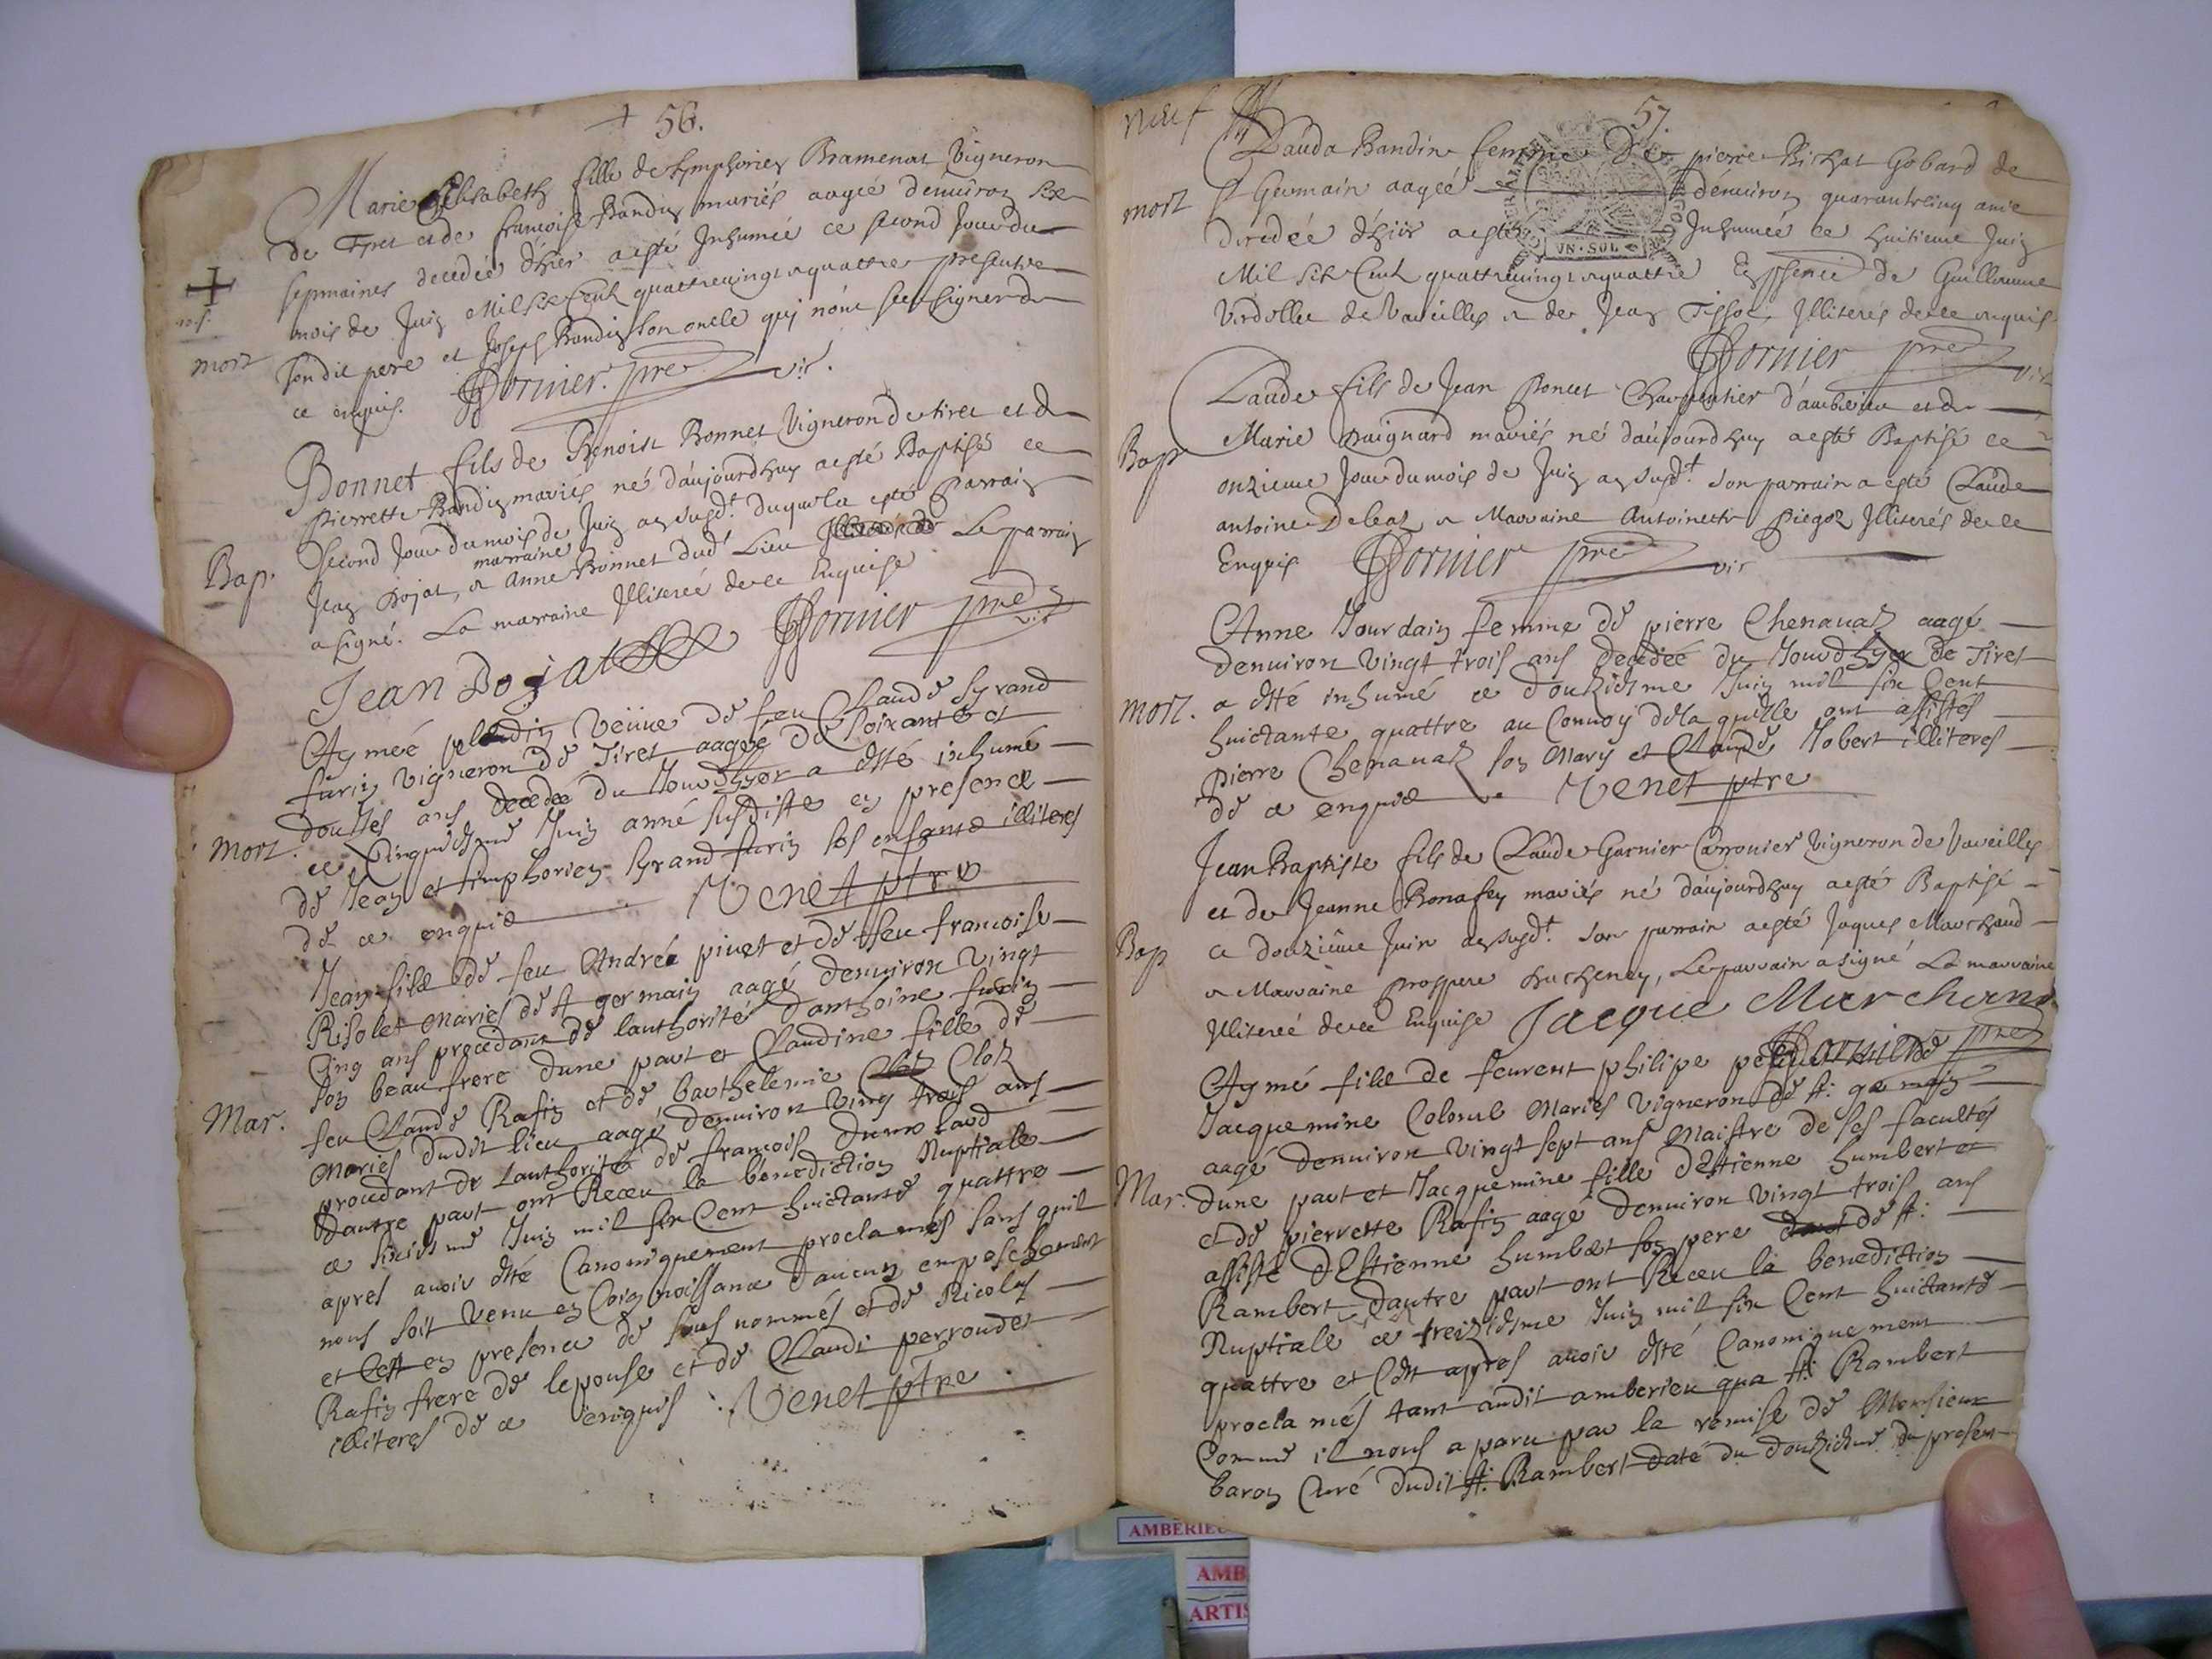 + 56.
Marie Elisabeth fille de Symphorien Bramenat Vigneron
de Tiret et de francoise Bandin mariés aagée dénuiron six
sepmaines decedée d'hier a esté Inhumée ce second Jour du
mois de Juin Mil six Cent quattrevingt & quattre presents
mort
son dit pere et Joseph Bandin son oncle qui n'ont sceu signer de
ce enquis. Dornier pre vic.
Bonnet fils de Benoist Bonnet Vigneron de tiret et de
pierrette Bandin mariés né d'aujourdhuy a esté Baptisé ce
second Jour du mois de Juin an susdt. duquel a esté parrain
Bap.
marraine
Jean Dojat, & Anne Bonnet dudt Lieu Le parrain
a signé. La marraine Illiterée de ce Enquise
Jean Dojat Dornier pre vic
Aymée veüue de feu Claude Syrand
furin vigneron de Tiret aagée de soixante et
ans decedée du Jourdhyer a esté inhumé
mort.
ce Cinquiesme Juin anné susditte en presence
de Jean et simphorien Syrand furin ses enfants illiteres
de ce enquis Venet ptre
Jean fils de feu André pinet et de feu francoise
Risolet mariés de st germain aagé denuiron vingt
Cinq ans procedant de lauthorité danthoine furin
son beau frere dune part et Claudine fille de
feu Claude Rafin et de barthelemie Clot
Mar.
Mariés dudit lieu aagé denuiron Ving trois ans
procedant de Lauthorité de francois
Dautre part ont Receu la benediction Nuptiale
ce sixiesme Juin mil six Cent huictante quattre
apres auoir esté Canoniquement proclames sans quil
nous soit venu en Coignoissance daucun empeschement
et Cest en presence de sous nommés et de Nicolas
Rafin frere de lepouse et de Claudi perroudet
illiteres de ce enquis Venet ptre
neuf
57.
Clauda Bandin femme De pierre Bichat Gobard de
mort
St Germain aageé dénuiron quarantecinq ans
decedée d'hier a esté Inhumée ce huitieme Juin
UN • SOL
Mil six Cent quattrevingt & quattre En psence de Guillaume
Verdollin de Vareilles & de Jean Tissot Illiterés de ce enquis
Dornier pre vic
Claude fils de Jean Poncet Charpentier d'ambérieu et de
Marie mariés né d'aujourdhuy a esté Baptisé ce
Bap
onzieme Jour du mois de Juin an susdt. son parrain a esté Claude
antoine Debeat & Marraine Antoinette Illiterés de ce
Enquis Dornier pre vic
Anne Jourdain femme de pierre Chenauat aagé
denuiron vingt trois ans decedée du Jourdhyer de Tiret
mort.
a esté inhumé ce douziesme Juin mil six Cent
huictante quattre au Connoy de la quelle ont assistés
pierre Chenauat son Mary et Claude Jobert illiteres
de ce enquis Venet ptre
Jean Baptiste fils de Claude Garnier Carronier Vigneron de Vareilles
et de Jeanne Bonafey mariés né d'aujourdhuy a esté Baptisé
Bap
ce douziéme Juin an susdt. son parrain a esté Jaques Marchand
& Marraine prospere Le parrain a signé La marraine
Illiterée de ce Enquise Jacque Marchand
Dornier pre
Aymé fils de feurent philipe et de
Jacquemine Colomb Mariés Vigneron de st: germain
aagé denuiron vingt sept ans Maistre de ses facultés
Mar.
dune part et Jacquemine fille dEstienne humbert et
et de pierrette Rafin aagé denuiron vingt trois ans
assisté dEstienne humbert son pere de st:
Rambert dautre part ont Receu la benediction
Nuptiale ce treiziesme Juin mil six Cent huictante
quattre et Cest apres auoir esté Canoniquement
proclamés tant audit amberieu qua st: Rambert
Comme il nous a paru par la remise de Monsieur
baron Curé dudit st: Rambert daté du douziesme du present
AMBÉRIEU
AMB
ARTIS